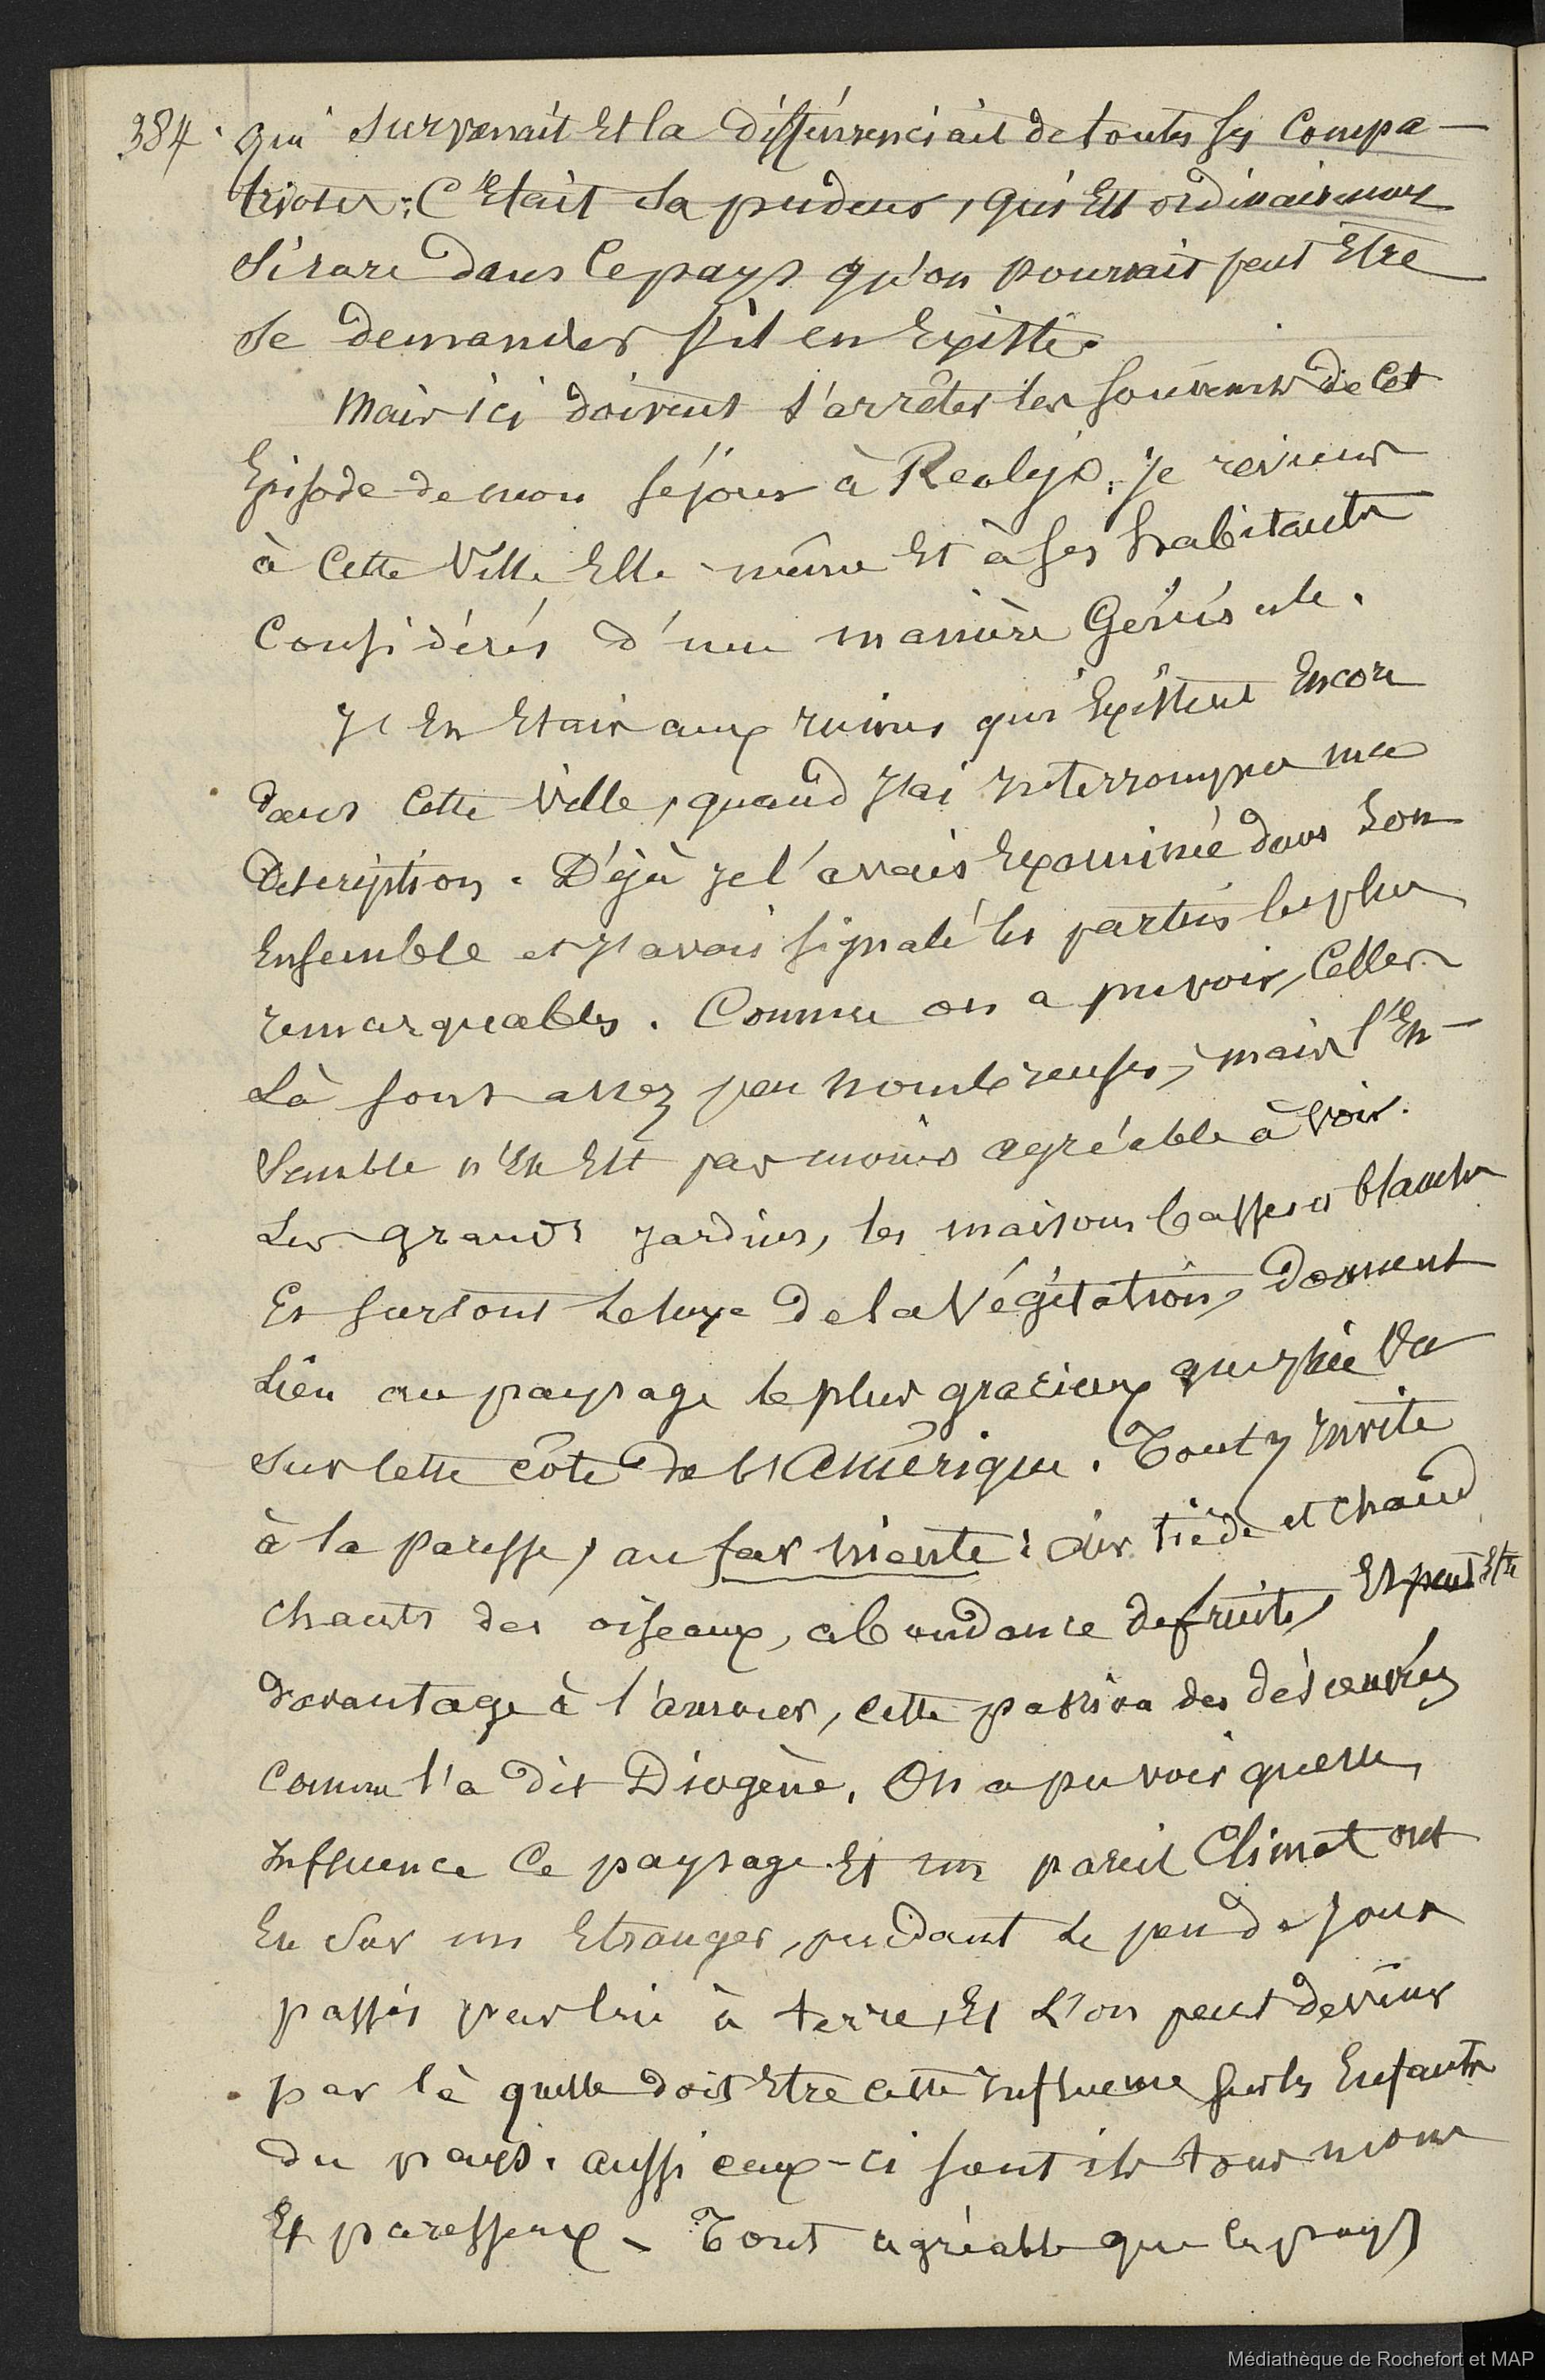 384. qui survenait Et la différenciait de toutes ses Compa-
triotes; C'Etait sa pudeur, qui Est ordinairement
si rare dans le pays qu'on pourrait peut Etre
se demander s'il en Existe.
Mais ici doivent s'arrêter les souvenirs de Cet
Episode de mon séjour à Realejo; je reviens
à Cette Ville Elle-même Et à ses habitants
Considérés d'une manière Générale.
Je En Etais aux ruines qui Existent Encore
dans Cette Ville, quand J'ai Interrompu ma
description. Déjà Je l'avais Examinée dans son
Ensemble et J'avais signalé les parties les plus
remarquables. Comme on a pu voir, Celles
là sont assez peu nombreuses, mais l'En-
semble n'En Est pas moins agréable à voir.
Les grands Jardins, les maisons basses et blanches
Et surtout le luxe de la Végétation, donnent
lieu au paysage le plus gracieux que J'aie Vu
sur Cette côte de l'Amérique. Tout y Invite
à la Paresse, au far niente: air tiède et chaud
chants des oiseaux, abondance de fruits, Et peut Etre
davantage à l'amour, cette passion des désœuvrés
comme l'a dit Diogène. On a pu voir quelle
Influence Ce paysage Et un pareil Climat ont
Eu sur un Etranger, pendant le peu de Jours
passés par lui à terre, Et L'on peut deviner
par là quelle doit Etre cette Influence sur les Enfants
du pays. aussi ceux-ci sont ils tous mous
Et paresseux. Tout agréable que le pays
Médiathèque de Rochefort et MAP